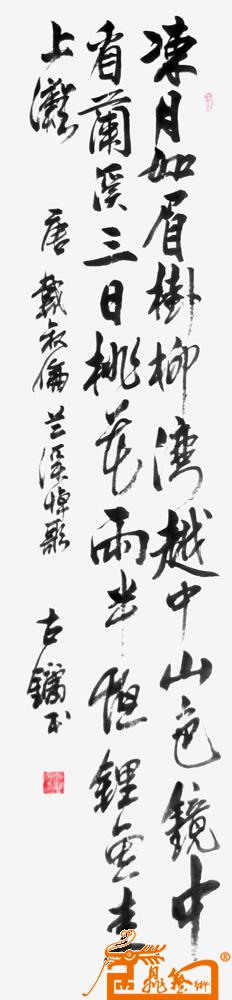 涼月如眉掛柳灣越中山色鏡中
看蘭溪三日桃花雨半夜鯉魚来
上灘
唐戴叔倫兰溪棹歌